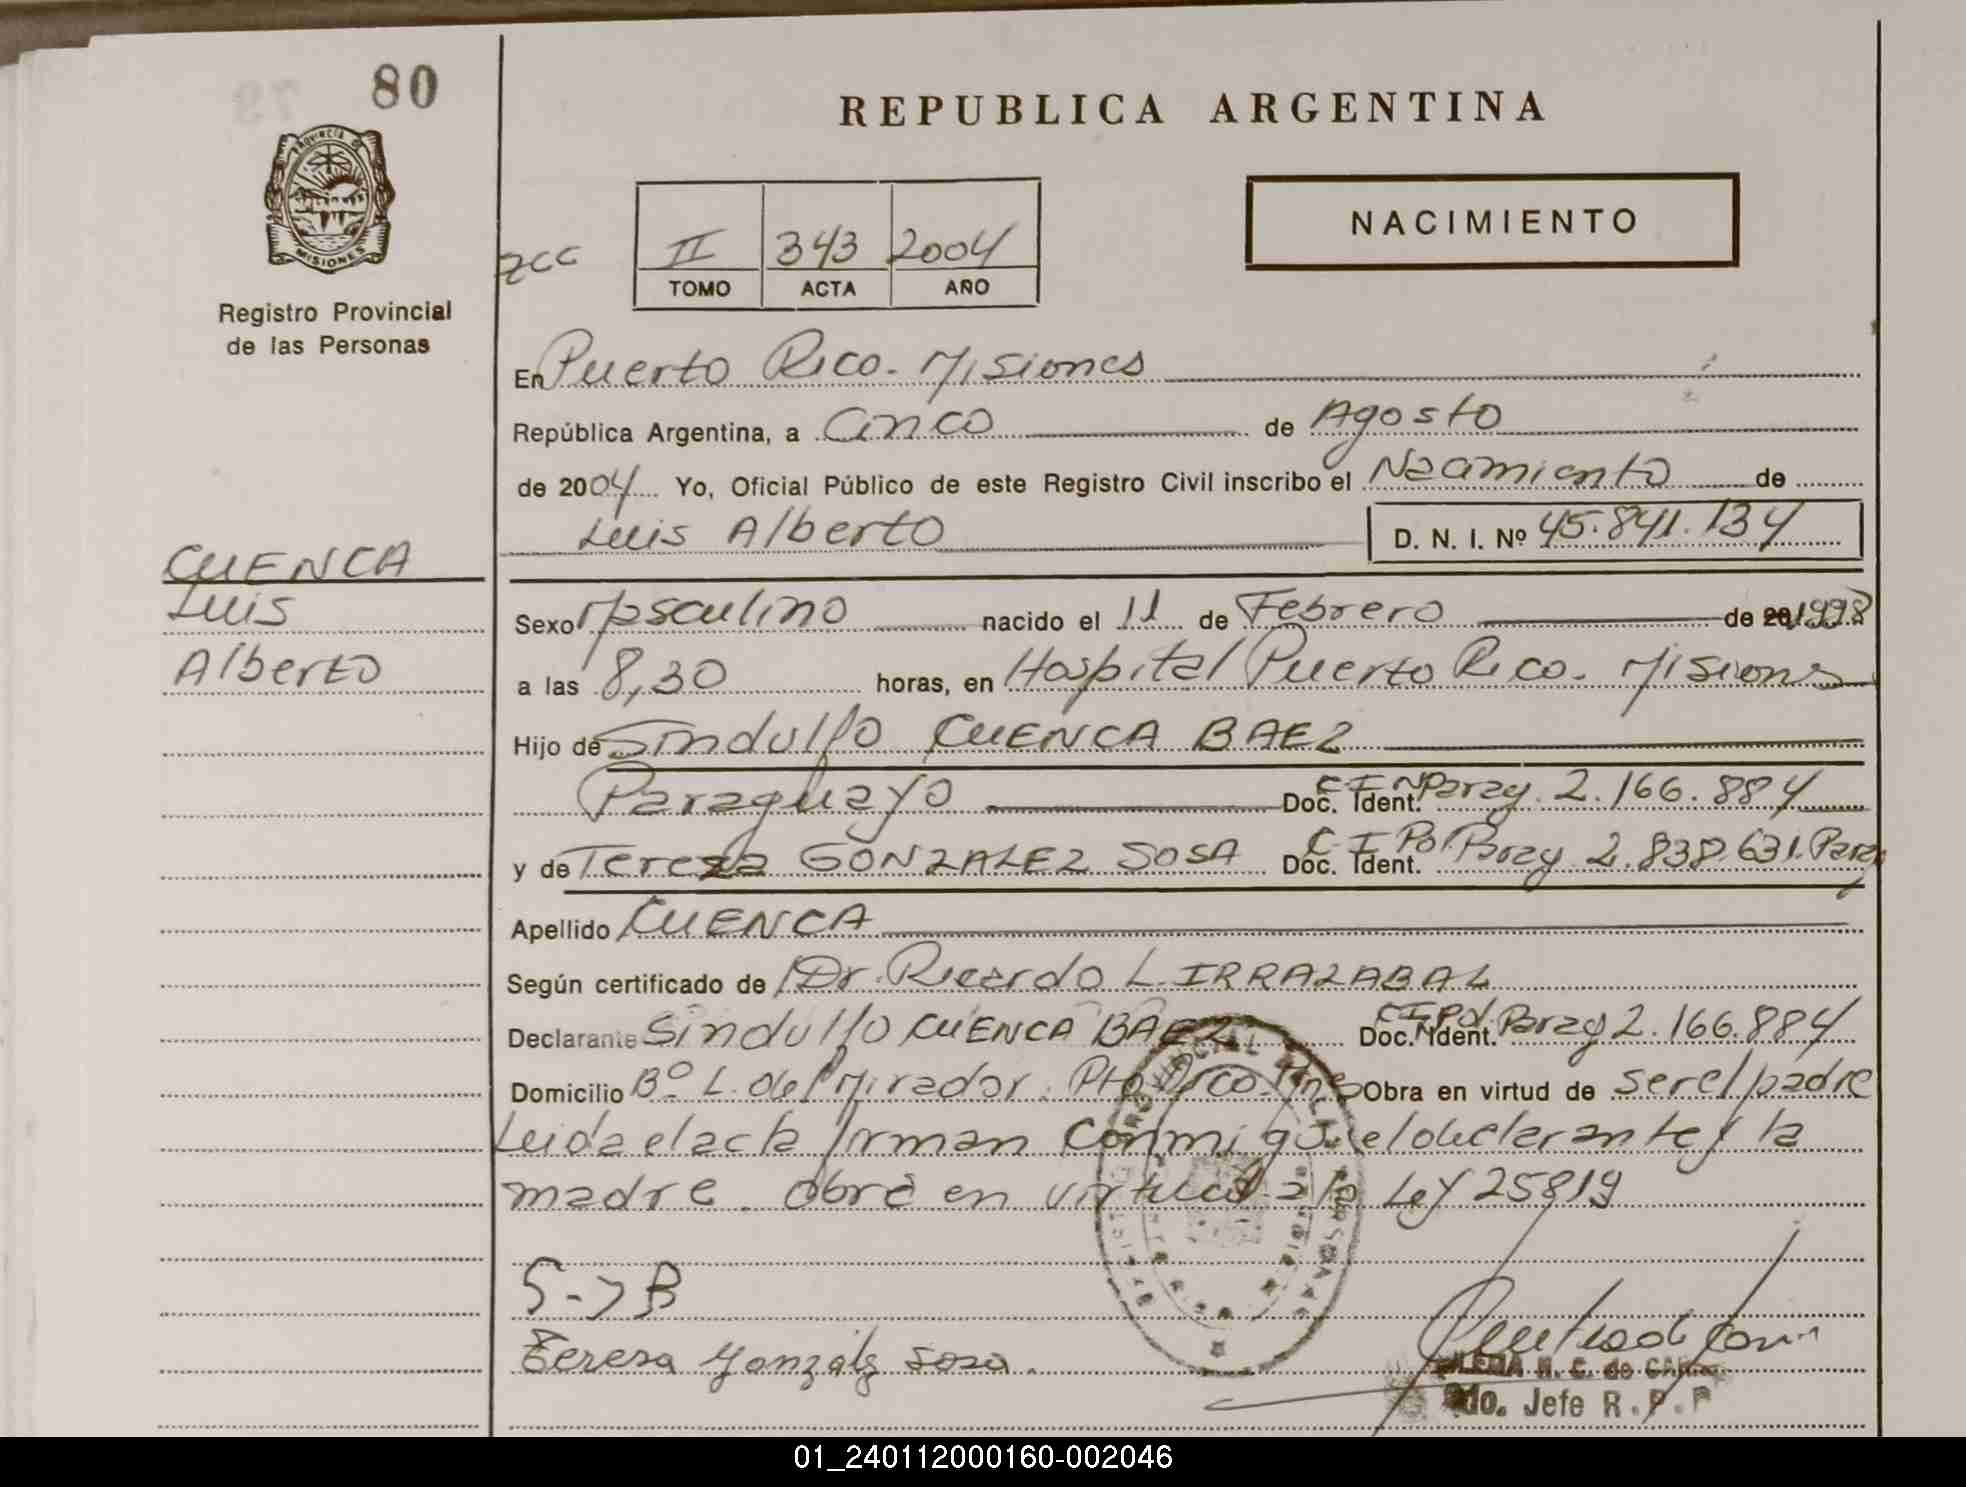 80
REPUBLICA ARGENTINA
PROVINCIA DE
MISIONES
Registro Provincial
de las Personas
II 343 2004
TOMO ACTA AÑO
NACIMIENTO
En Puerto Rico. Misiones
República Argentina, a Cinco de Agosto
de 2004 Yo, Oficial Público de este Registro Civil inscribo el Nacimiento de
Luis Alberto D. N. I. Nº 45.841.134
CUENCA
Luis
Alberto
Sexo Masculino nacido el 11 de Febrero de 1998
a las 8,30 horas, en Hospital Puerto Rico. Misiones
Hijo de Sindulfo CUENCA BAEZ
Paraguayo Doc. Ident. C I N Parag. 2.166.884
y de Tereza GONZALEZ SOSA Doc. Ident. C. I Pol Parag 2.838.631. Parag
Apellido CUENCA
Según certificado de Dr. Ricardo L. IRRAZABAL
Declarante Sindulfo CUENCA BAEZ Doc. Ident. Parag 2.166.884
Domicilio Bº L. del Mirador. Pto Rico. Mnes Obra en virtud de ser el padre
Leida el acta firman conmigo el declarante y la
madre. Obra en virtud a la Ley 25819
Tereza Gonzalez Sosa.
N. C. de
Jefe R. P. P
01_240112000160-002046